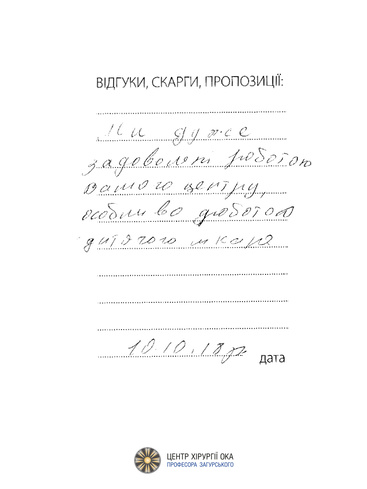 ВІДГУКИ, СКАРГИ, ПРОПОЗИЦІЇ:
Ми дуже
задоволені роботою
вашого центру,
особливо роботою
дитячого лікаря
10.10.18р.
дата
ЦЕНТР ХІРУРГІЇ ОКА
ПРОФЕСОРА ЗАГУРСЬКОГО